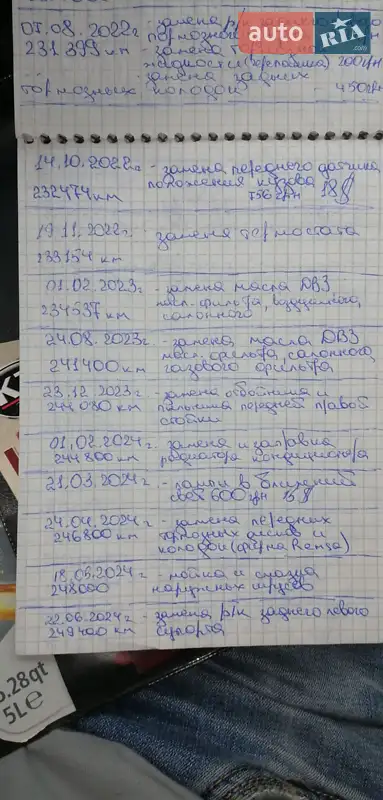 07.08.2022г - замена р/к
auto RIA .com
231 399 км
- замена
жидкости 200грн
- замена задних
тормозных колодок - 450грн
14.10.2022г - замена переднего датчика
положения кузова
232474 км 756 грн 18$
19.11.2022г. - замена термостата
233154 км
01.02.2023г - замена масла ДВЗ,
234537 км масл. фильтра, воздушного,
салонного
24.08.2023г - замена масла ДВЗ
241400 км масл. фильтра, салонного,
газового фильтра
23.12.2023г - замена отбойника и
244080 км пыльника передней правой
стойки
01.02.2024г - замена и заправка
244800 км радиатора кондиционера
21.03.2024г - лампы в ближний
свет 600 грн 15$
24.04.2024г - замена передних
246800 км тормозных дисков и
колодок (фирма Remsa)
18.06.2024г - мойка и смазка
248000 наружных шрусов
22.06.2024г - замена р/к заднего левого
249400 км суппорта
5.28qt
5Le